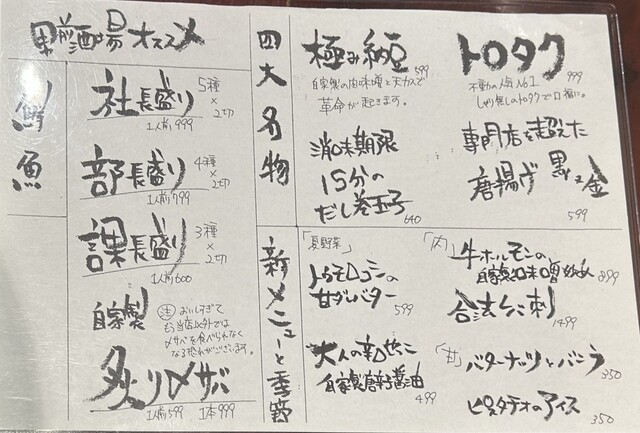 酒場オススメ
鮮魚
社長盛り
5種×2切
1人前999
部長盛り
4種×2切
1人前799
課長盛り
3種×2切
1人前600
自家製
炙り〆サバ
注 おいしすぎて
もう当店以外では
〆サバを食べられなく
なる恐れがございます。
1人前599 1本999
四大名物
極み納豆
599
自家製の肉味噌と天カスで
革命が起きます。
トロタク
999
不動の人気No.1
しゃり無しのトロタクで口福に。
消味期限
15分の
だし巻玉子
640
専門店を超えた
唐揚げ 黒or金
599
新メニューと季節
「夏野菜」
トウモロコシの
甘がしバター
599
大人の辛せやっこ
自家製唐辛子醤油
499
「肉」
牛ホルモンの
自家製味噌炒め
899
合法レバ刺
1499
「甘」
バターナッツとバニラ
350
ピスタチオのアイス
350